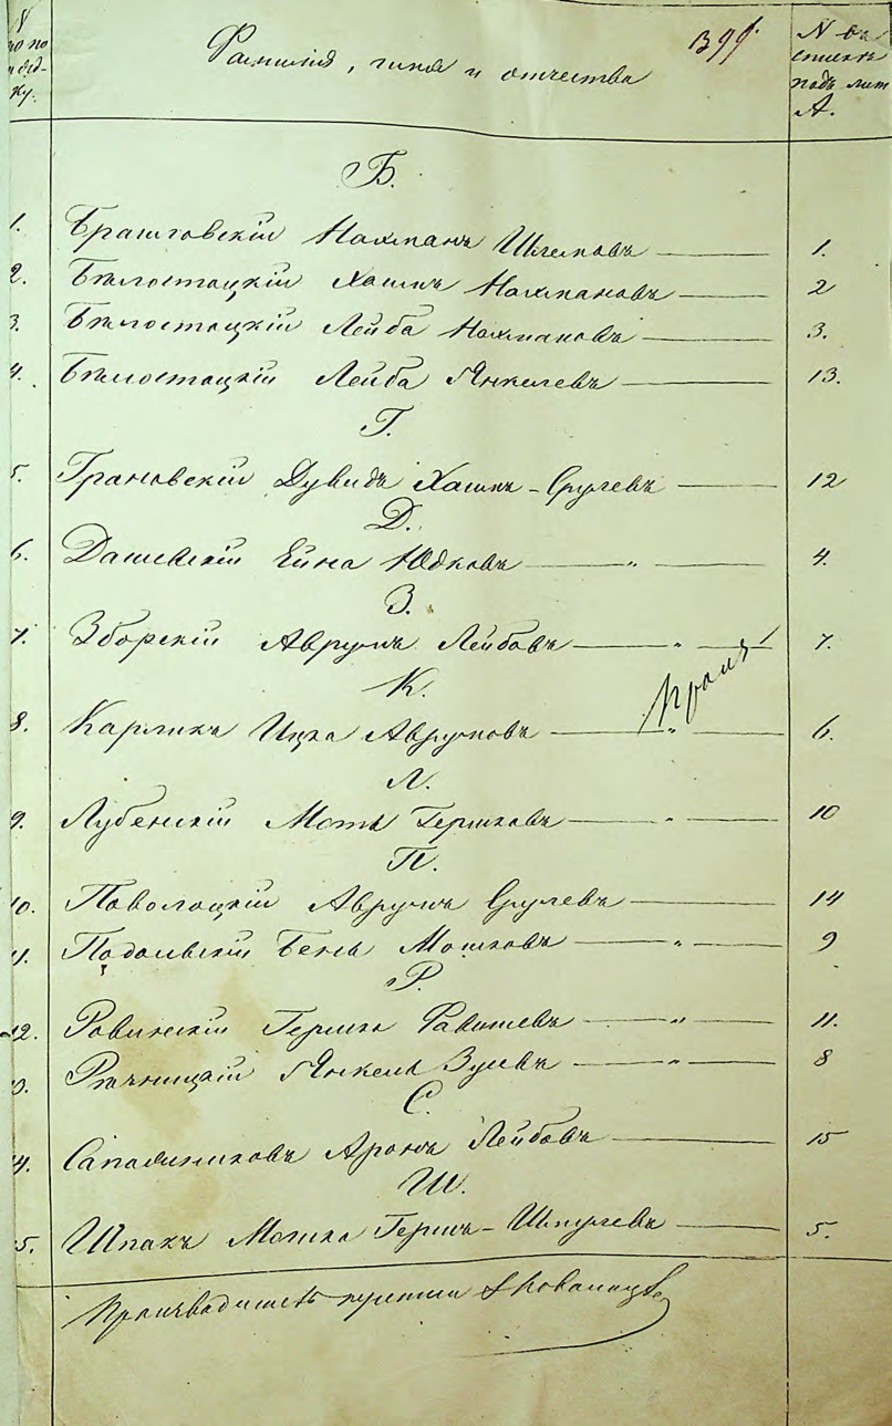 N по по ряд- ку.
Фамилія, имя и отчества
N въ спискѣ подъ лит А.
Б.
1. Брашговскій Нахманъ Шлемовъ 1.
2. Бѣлостоцкій Хаимъ Нахмановъ 2
3. Бѣлостоцкій Лейба Нахмановъ 3.
4. Бѣлостоцкій Лейба Янкелевъ 13.
Г.
5. Грановскій Дувидъ Хаимъ-Срулевъ 12
Д.
6. Дашевскій Ейна Юдковъ " 4.
З.
7. Зборскій Аврумъ Лейбовъ " 7.
К.
8. Карликъ Ицка Аврумовъ " 6.
Л.
9. Лубенскій Моть Гершковъ " 10
П.
10. Поволоцкій Аврумъ Срулевъ 14
11. Подольскій Бень Мошковъ " 9
Р.
12. Ровинскій Гершко " 11.
13. Рѣчницкій Янкель Зусевъ " 8
С.
14. Сапожниковъ Аронъ Лейбовъ 15
Ш.
15. Шпакъ Мошка Гершъ-Шмулевъ 5.